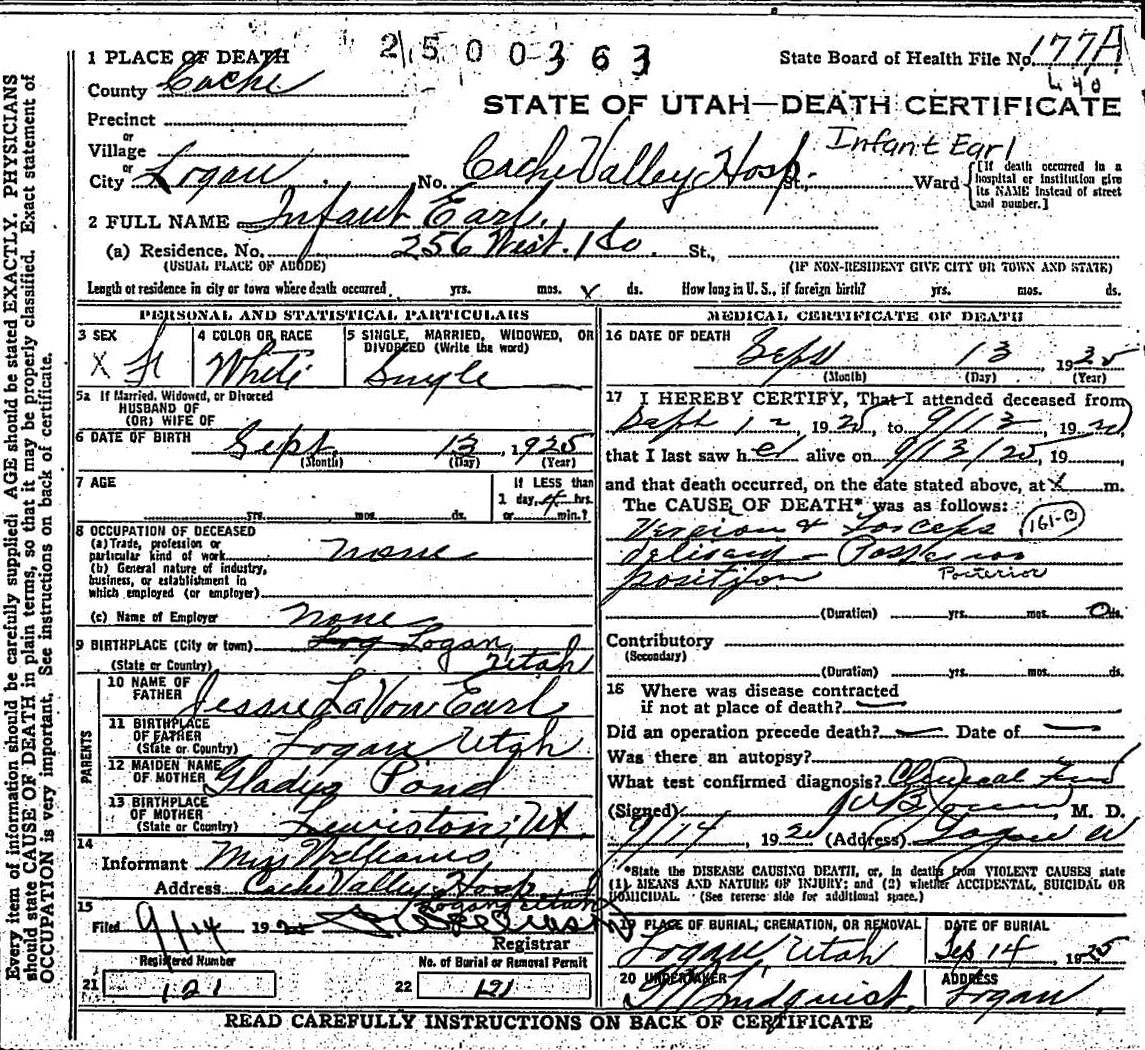 2500363
1 PLACE OF DEATH
State Board of Health File No. 177A
440
County Cache
STATE OF UTAH—DEATH CERTIFICATE
Precinct
or
Village
Infant Earl
or
City Logan No. Cache Valley Hosp. St., Ward
[If death occurred in a hospital or institution give its NAME instead of street and number.]
2 FULL NAME Infant Earl
(a) Residence, No. 256 West. 1 So. St.,
(USUAL PLACE OF ABODE) (IF NON-RESIDENT GIVE CITY OR TOWN AND STATE)
Length of residence in city or town where death occurred yrs. mos. ds. How long in U. S., if foreign birth? yrs. mos. ds.
PERSONAL AND STATISTICAL PARTICULARS
3 SEX
X
4 COLOR OR RACE
White
5 SINGLE, MARRIED, WIDOWED, OR
DIVORCED (Write the word)
Single
5a If Married, Widowed, or Divorced
HUSBAND OF
(OR) WIFE OF
6 DATE OF BIRTH Sept. 13, 1925
(Month) (Day) (Year)
7 AGE
yrs. mos. ds.
If LESS than
1 day, hrs.
or min.?
8 OCCUPATION OF DECEASED
(a) Trade, profession or
particular kind of work none
(b) General nature of industry,
business, or establishment in
which employed (or employer)
(c) Name of Employer none
9 BIRTHPLACE (City or town) Log Logan,
(State or Country) Utah
PARENTS
10 NAME OF
FATHER Jessie LaVon Earl
11 BIRTHPLACE
OF FATHER
(State or Country) Logan Utah
12 MAIDEN NAME
OF MOTHER Gladys Pond
13 BIRTHPLACE
OF MOTHER
(State or Country) Lewiston, Ut.
14
Informant Miss Williams,
Address Cache Valley Hosp.
Logan, Utah
15
Filed 9/14 1925
Registrar
Registered Number
21 121
No. of Burial or Removal Permit
22 121
MEDICAL CERTIFICATE OF DEATH
16 DATE OF DEATH
Sept 13 1925
(Month) (Day) (Year)
17 I HEREBY CERTIFY, That I attended deceased from
Sept 12 1925, to 9/13, 19
that I last saw her alive on 9/13/25, 19
and that death occurred, on the date stated above, at m.
The CAUSE OF DEATH* was as follows:
Version & Forceps 161-B
delivery — Posterior
position Posterior
(Duration) yrs. mos. 0 ds.
Contributory
(Secondary)
(Duration) yrs. mos. ds.
18 Where was disease contracted
if not at place of death?
Did an operation precede death? Date of
Was there an autopsy?
What test confirmed diagnosis?
(Signed) M. D.
9/14, 192 (Address) Logan
*State the DISEASE CAUSING DEATH, or, in deaths from VIOLENT CAUSES state
(1) MEANS AND NATURE OF INJURY; and (2) whether ACCIDENTAL, SUICIDAL OR
HOMICIDAL. (See reverse side for additional space.)
19 PLACE OF BURIAL, CREMATION, OR REMOVAL
Logan, Utah
DATE OF BURIAL
Sep 14, 1925
20 UNDERTAKER
Lindquist,
ADDRESS
Logan
READ CAREFULLY INSTRUCTIONS ON BACK OF CERTIFICATE
Every item of information should be carefully supplied: AGE should be stated EXACTLY. PHYSICIANS
should state CAUSE OF DEATH in plain terms, so that it may be properly classified. Exact statement of
OCCUPATION is very important. See instructions on back of certificate.